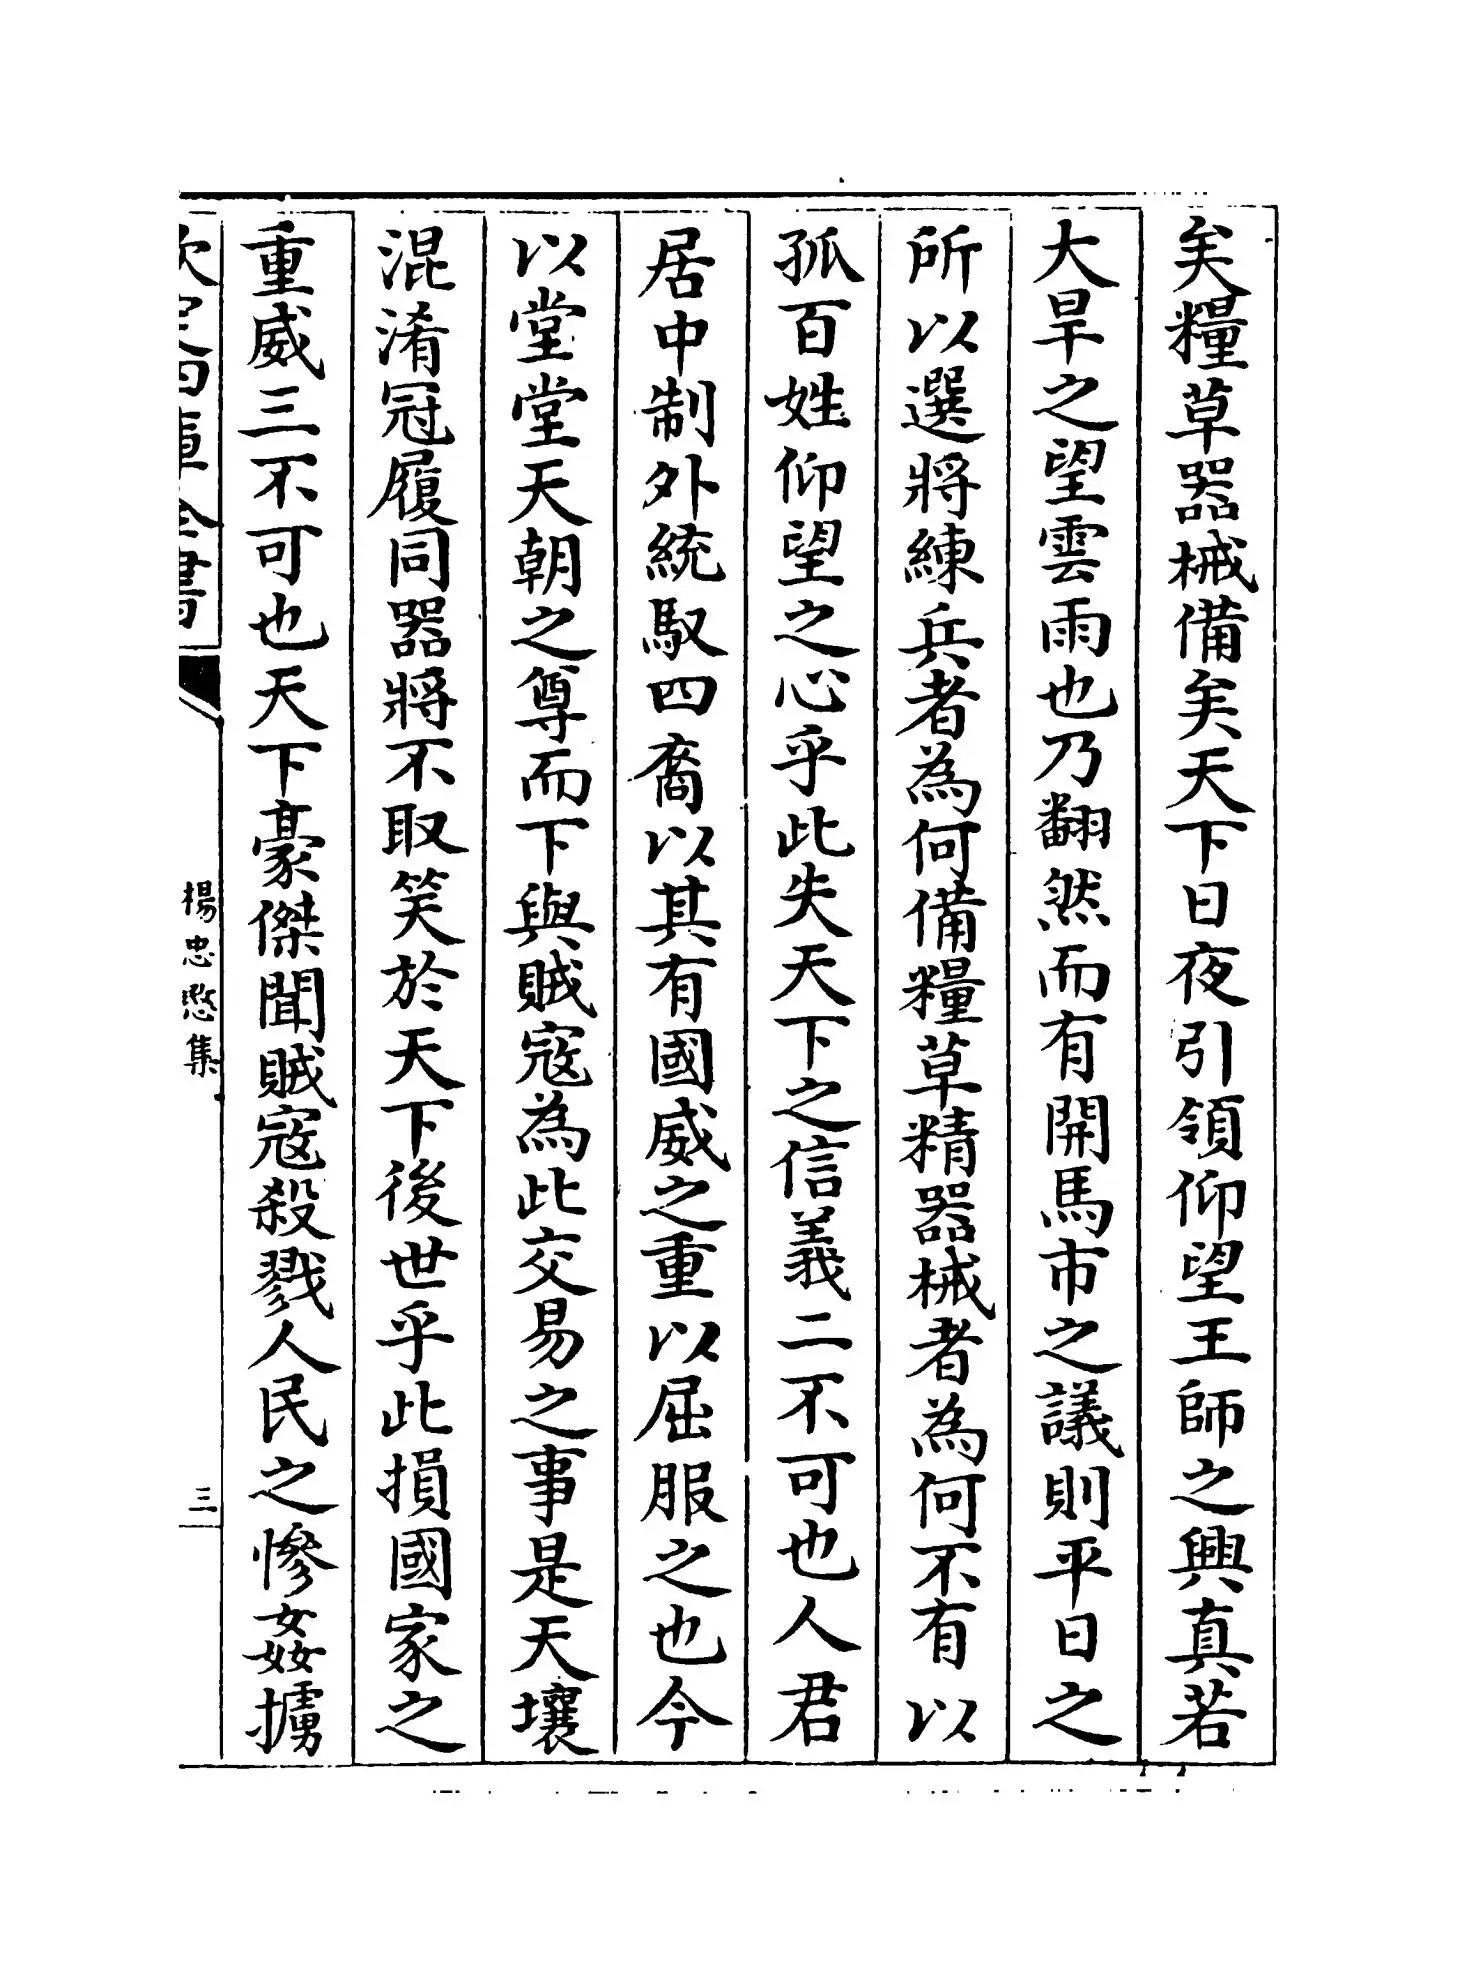 矣糧草器械備矣天下日夜引領仰望王師之興真若
大旱之望雲雨也乃翻然而有開馬市之議則平日之
所以選將練兵者為何備糧草精器械者為何不有以
孤百姓仰望之心乎此失天下之信義二不可也人君
居中制外統馭四裔以其有國威之重以屈服之也今
以堂堂天朝之尊而下與賊寇為此交易之事是天壤
混淆冠履同器將不取笑於天下後世乎此損國家之
重威三不可也天下豪傑聞賊寇殺戮人民之慘姦擄
欽定四庫全書
楊忠愍集
三